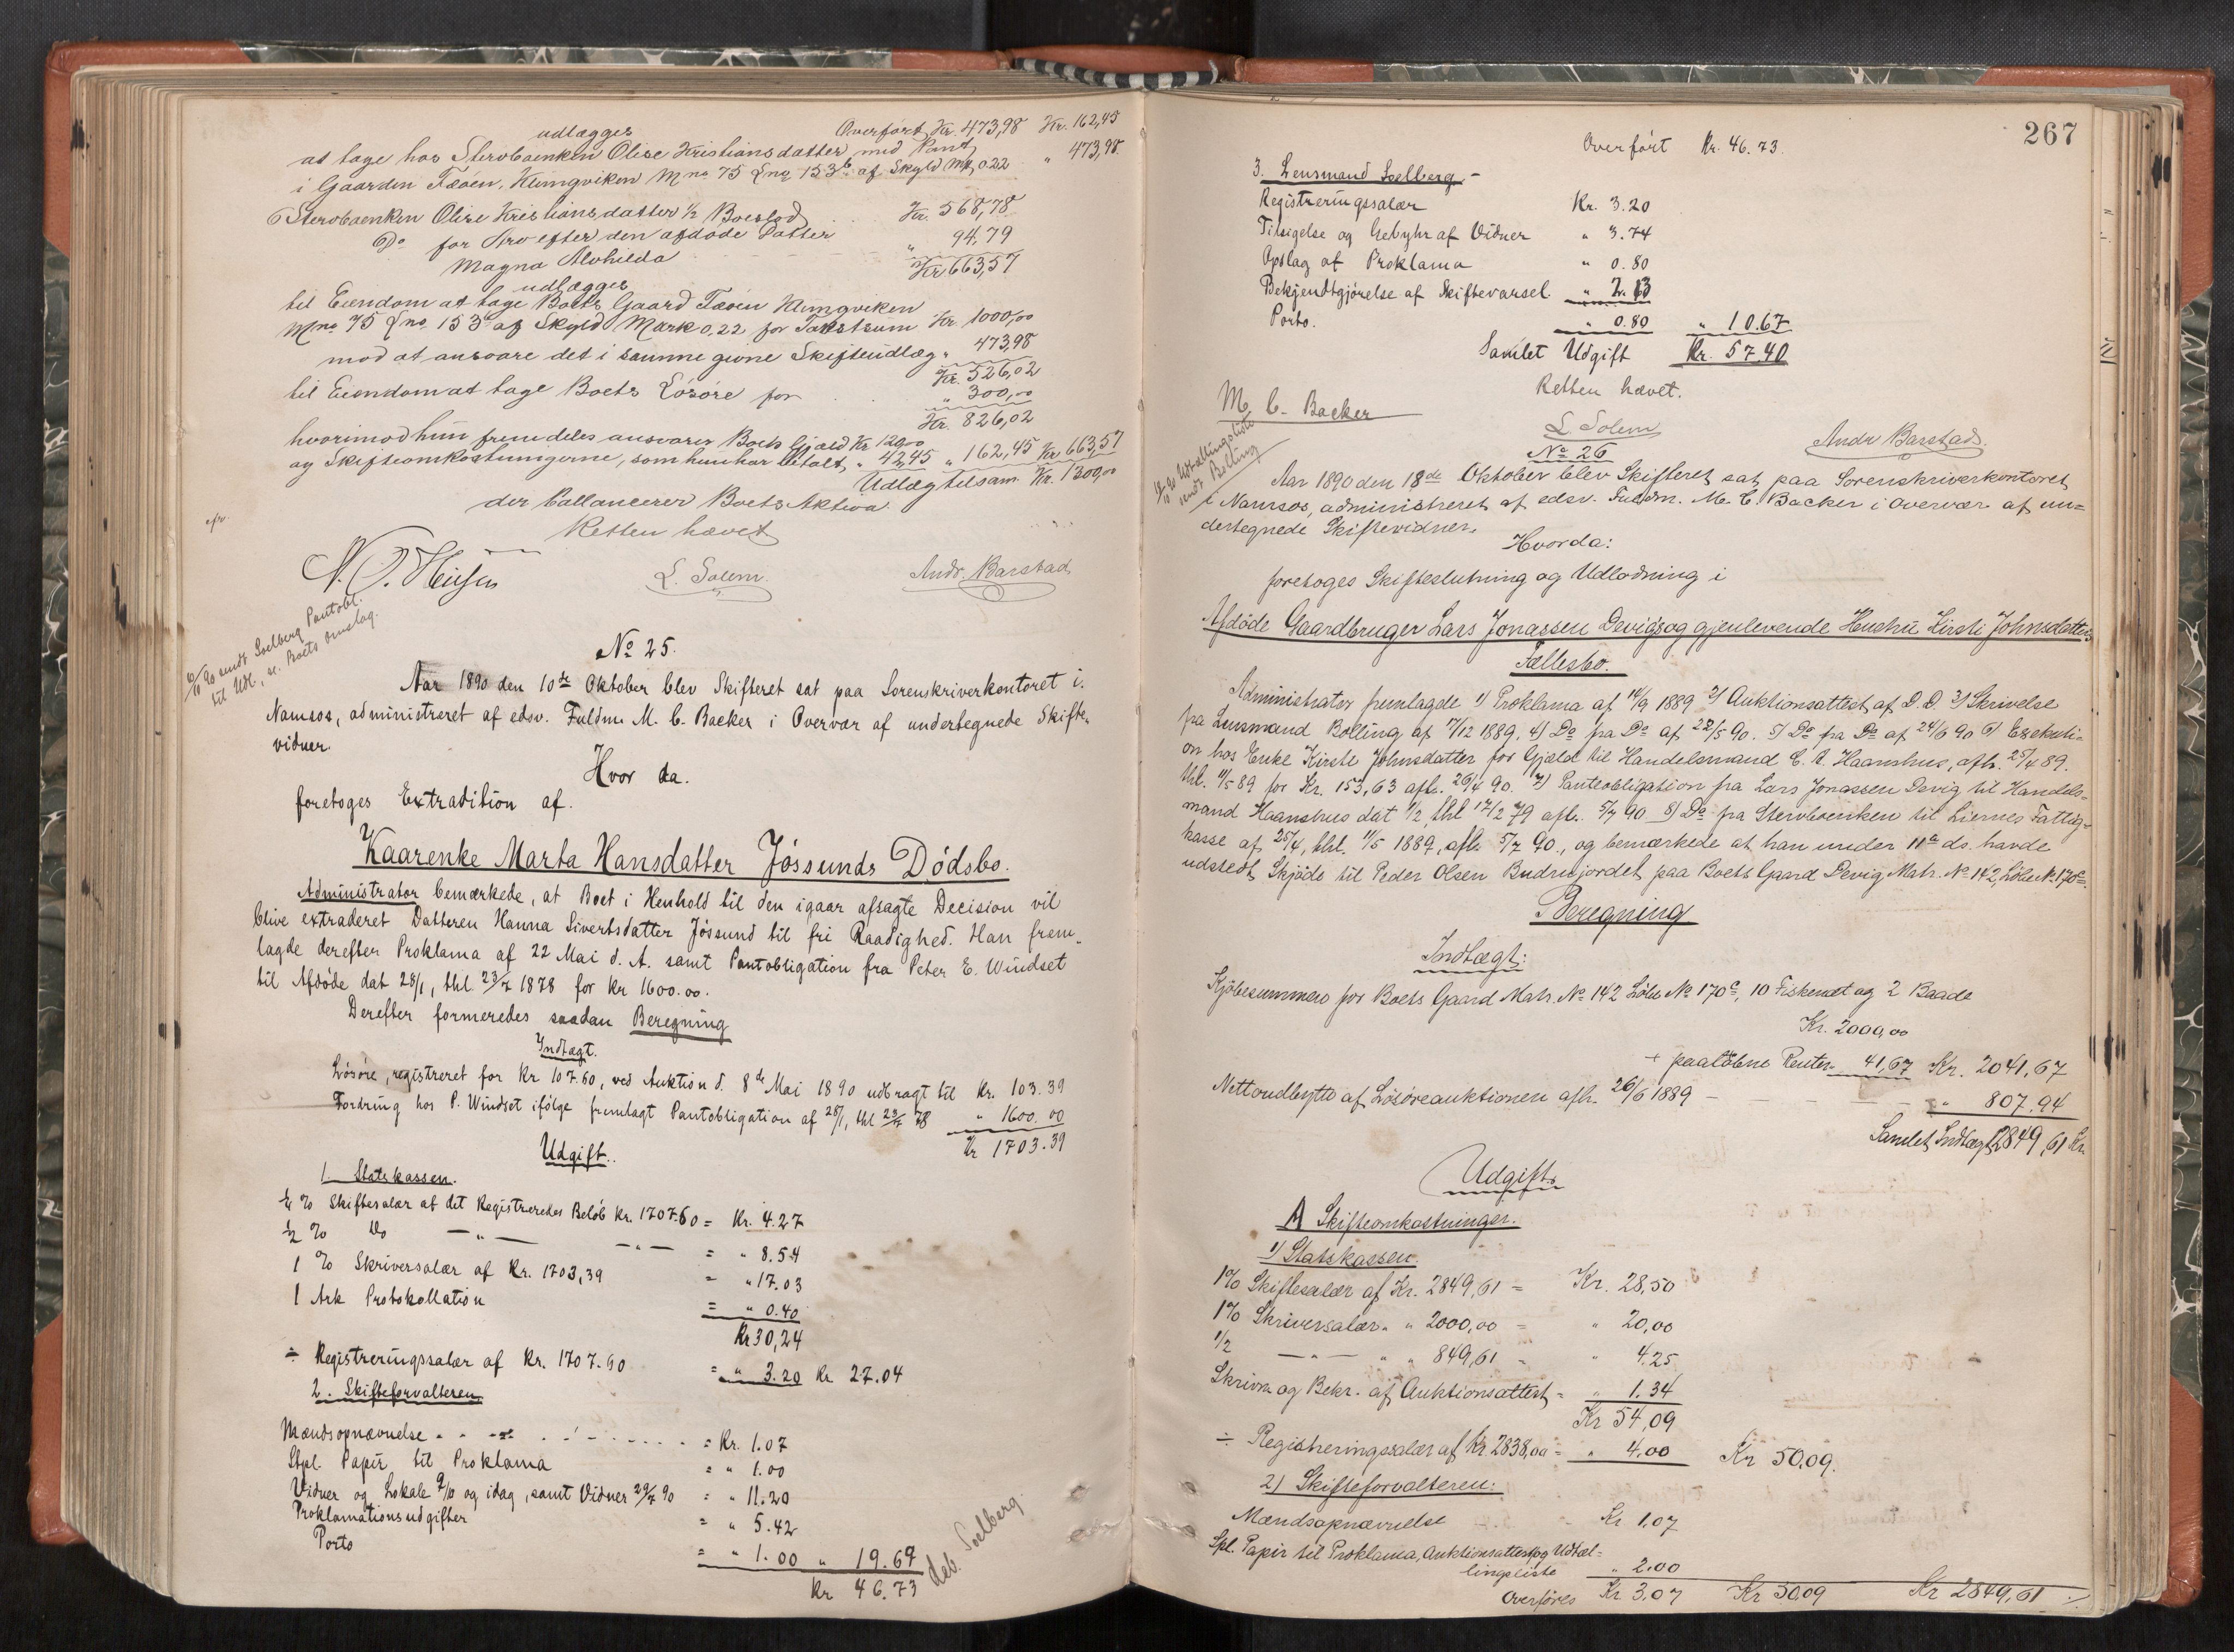 Overført Kr. 473,98 Kr. 162,45
udlægges
at tage hos Stervboenken Olise Kristiansdatter med Pant " 473,98
i Gaarden Fæøen, Klungviken Mno 75 Lno 153b af Skyld Mk 0.22
Stervboenken Olise Kristiansdatter 1/2 Boeslod Kr. 568,78
Do for Arv efter den afdøde Datter
Magna Alvhilda " 94,79
Kr 663,57
udlægges
til Eiendom at tage Boets Gaard Fæøen Klungviken
Mno 75 Lno 153b af Skyld Mark 0,22 for Taxtsum Kr. 1000,00
mod at ansvare det i samme givne Skifteudlæg " 473,98
Kr. 526,02
til Eiendom at tage Boets Løsøre for " 300,00
Kr. 826,02
hvorimod hun fremdeles ansvarer Boets Gjæld Kr 120,00
og Skifteomkostningerne, som hun har betalt, " 42,45 " 162,45 Kr 663,57
Udlæg tilsam. Kr. 1300,00
der ballancerer Boets Aktiva.
Retten hævet
L. Solem. Andr. Barstad
10/10 90 sendt Soelberg Pantobl.
til Udl., se Boets Omslag.
No 25.
Aar 1890 den 10de Oktober blev Skifteret sat paa Sorenskriverkontoret i
Namsos, administreret af edsv. Fuldm. M. C. Backer i Overvær af undertegnede Skifte-
vidner.
Hvor da.
foretoges Extradition af.
Kaarenke Marta Hansdatter Jøssunds Dødsbo.
Administrator bemærkede, at Boet i Henhold til den igaar afsagte Decision vil
blive extraderet Datteren Hanna Sivertsdatter Jøssund til fri Raadighed. Han frem-
lagde derefter Proklama af 22 Mai d. A. samt Pantobligation fra Peter E. Windset
til Afdøde dat 28/1, thl. 23/7 1878 for Kr 1600.00.
Derefter formeredes saadan Beregning
Indtægt.
Løsøre, registreret for Kr 107.60, ved Auktion d. 8de Mai 1890 udbragt til Kr. 103.39
Fordring hos P. Windset ifølge fremlagt Pantobligation af 28/1, thl 23/7 78 " 1600.00
Kr 1703.39
Udgift.
1. Statskassen.
1/4 % Skiftesalær af det Registreredes Beløb Kr. 1707.60 = Kr. 4.27
1/2 % Do — " — — " — = " 8.54
1 % Skriversalær af Kr. 1703,39 = " 17.03
1 Ark Protokollation = " 0.40
Kr 30,24
÷ Registreringssalær af Kr. 1707.60 = " 3.20 Kr 27.04
2. Skifteforvalteren.
Mændsopnævnelse = Kr. 1.07
Stpl. Papir til Proklama = " 1.00
Vidner og Lokale 9/10 og idag, samt Vidner 29/7 90 = " 11.20
Proklamationsudgifter = " 5.42
Porto = " 1.00 " 19.69
Kr 46.73
deb. Soelberg.
267
Overført Kr. 46.73.
3. Lensmand Soelberg.-
Registreringssalær Kr. 3.20
Tilsigelse og Gebyhr af Vidner " 3.74
Opslag af Proklama " 0.80
Bekjendtgjørelse af Skiftevarsel " 2.13
Porto. " 0.80 " 10.67
Samlet Udgift Kr. 57.40
Retten hævet.
M. C. Backer
L. Solem
Andr Barstad.
Udtællingsliste
sendt Bølling
No 26
Aar 1890 den 18de Oktober blev Skifteret sat paa Sorenskriverkontoret
i Namsos, administreret af edsv. Fuldm. M. C. Backer i Overvær af un=
dertegnede Skiftevidner.
Hvorda:
foretoges Skifteslutning og Udlodning i
Afdøde Gaardbruger Lars Jonassen Devigs og gjenlevende Hustru Kirsti Johnsdatters
Fællesbo.
Administrator fremlagde 1) Proklama af 14/9 1889 2) Auktionsattest af D.D. 3) Skrivelse
fra Lensmand Bølling af 17/12 1889. 4) Do fra Do af 28/5 90. 5) Do fra Do af 24/6 90 6) Eksekuti-
on hos Enke Kirsti Johnsdatter for Gjæld til Handelsmand C. A. Haanshus, afh. 25/4 89.
thl. 11/5 89 for Kr. 153,63 afl. 26/4 90. 7) Panteobligation fra Lars Jonassen Devig til Handels-
mand Haanshus dat 1/2, thl 17/2 79 afl. 5/7 90 8) Do fra Stervboenken til Liernes Fattig-
kasse af 25/4, thl. 11/5 1889, afl. 5/7 90, og bemærkede at han under 11te ds. havde
udstedt Skjøde til Peder Olsen Budrujordet paa Boets Gaard Devig Matr. No 142, Løbe No. 170c.
Beregning
Indtægt:
Kjøbesummen for Boets Gaard Matr. No 142 Løbe No 170c, 10 Fiskenæt og 2 Baade
Kr. 2000,00
+ paaløbne Renter 41,67 Kr. 2041,67
Nettoudbytte af Løsøreauktionen afh. 26/6 1889 — " 807,94
Samlet Indtægt 2849,61 Kr.
Udgift.
A Skifteomkostninger.
1) Statskassen.
1% Skiftesalær af Kr. 2849,61 = Kr. 28,50
1% Skriversalær " " 2000,00 = " 20,00
1/2 — " — " " 849,61 = " 4.25
Skrivn. og Bekr. af Auktionsattest = " 1.34
Kr 54,09
÷ Registreringssalær af Kr. 2838,00 = " 4,00 Kr 50.09.
2) Skifteforvalteren:
Mændsopnævnelse Kr 1,07
Spl. Papir til Proklama, Auktionsattest og Udtæl=
lingsliste " 2.00
Overføres Kr 3,07 Kr 50,09 Kr 2849,61 ./.